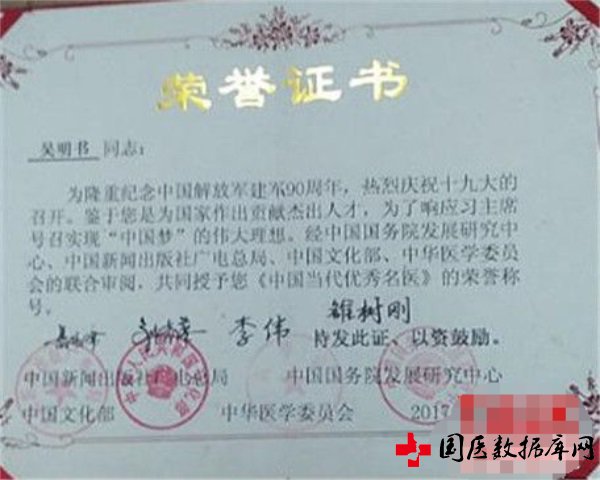 荣誉证书
吴明书 同志：
为隆重纪念中国解放军建军90周年，热烈庆祝十九大的
召开。鉴于您是为国家作出贡献杰出人才，为了响应习主席
号召实现“中国梦”的伟大理想。经中国国务院发展研究中
心、中国新闻出版社广电总局、中国文化部、中华医学委员
会的联合审阅，共同授予您《中国当代优秀名医》的荣誉称
号。
李伟 雒树刚
特发此证、以资鼓励。
中国新闻出版社广电总局 中国国务院发展研究中心
中国文化部 中华医学委员会 2017
国医数据库网